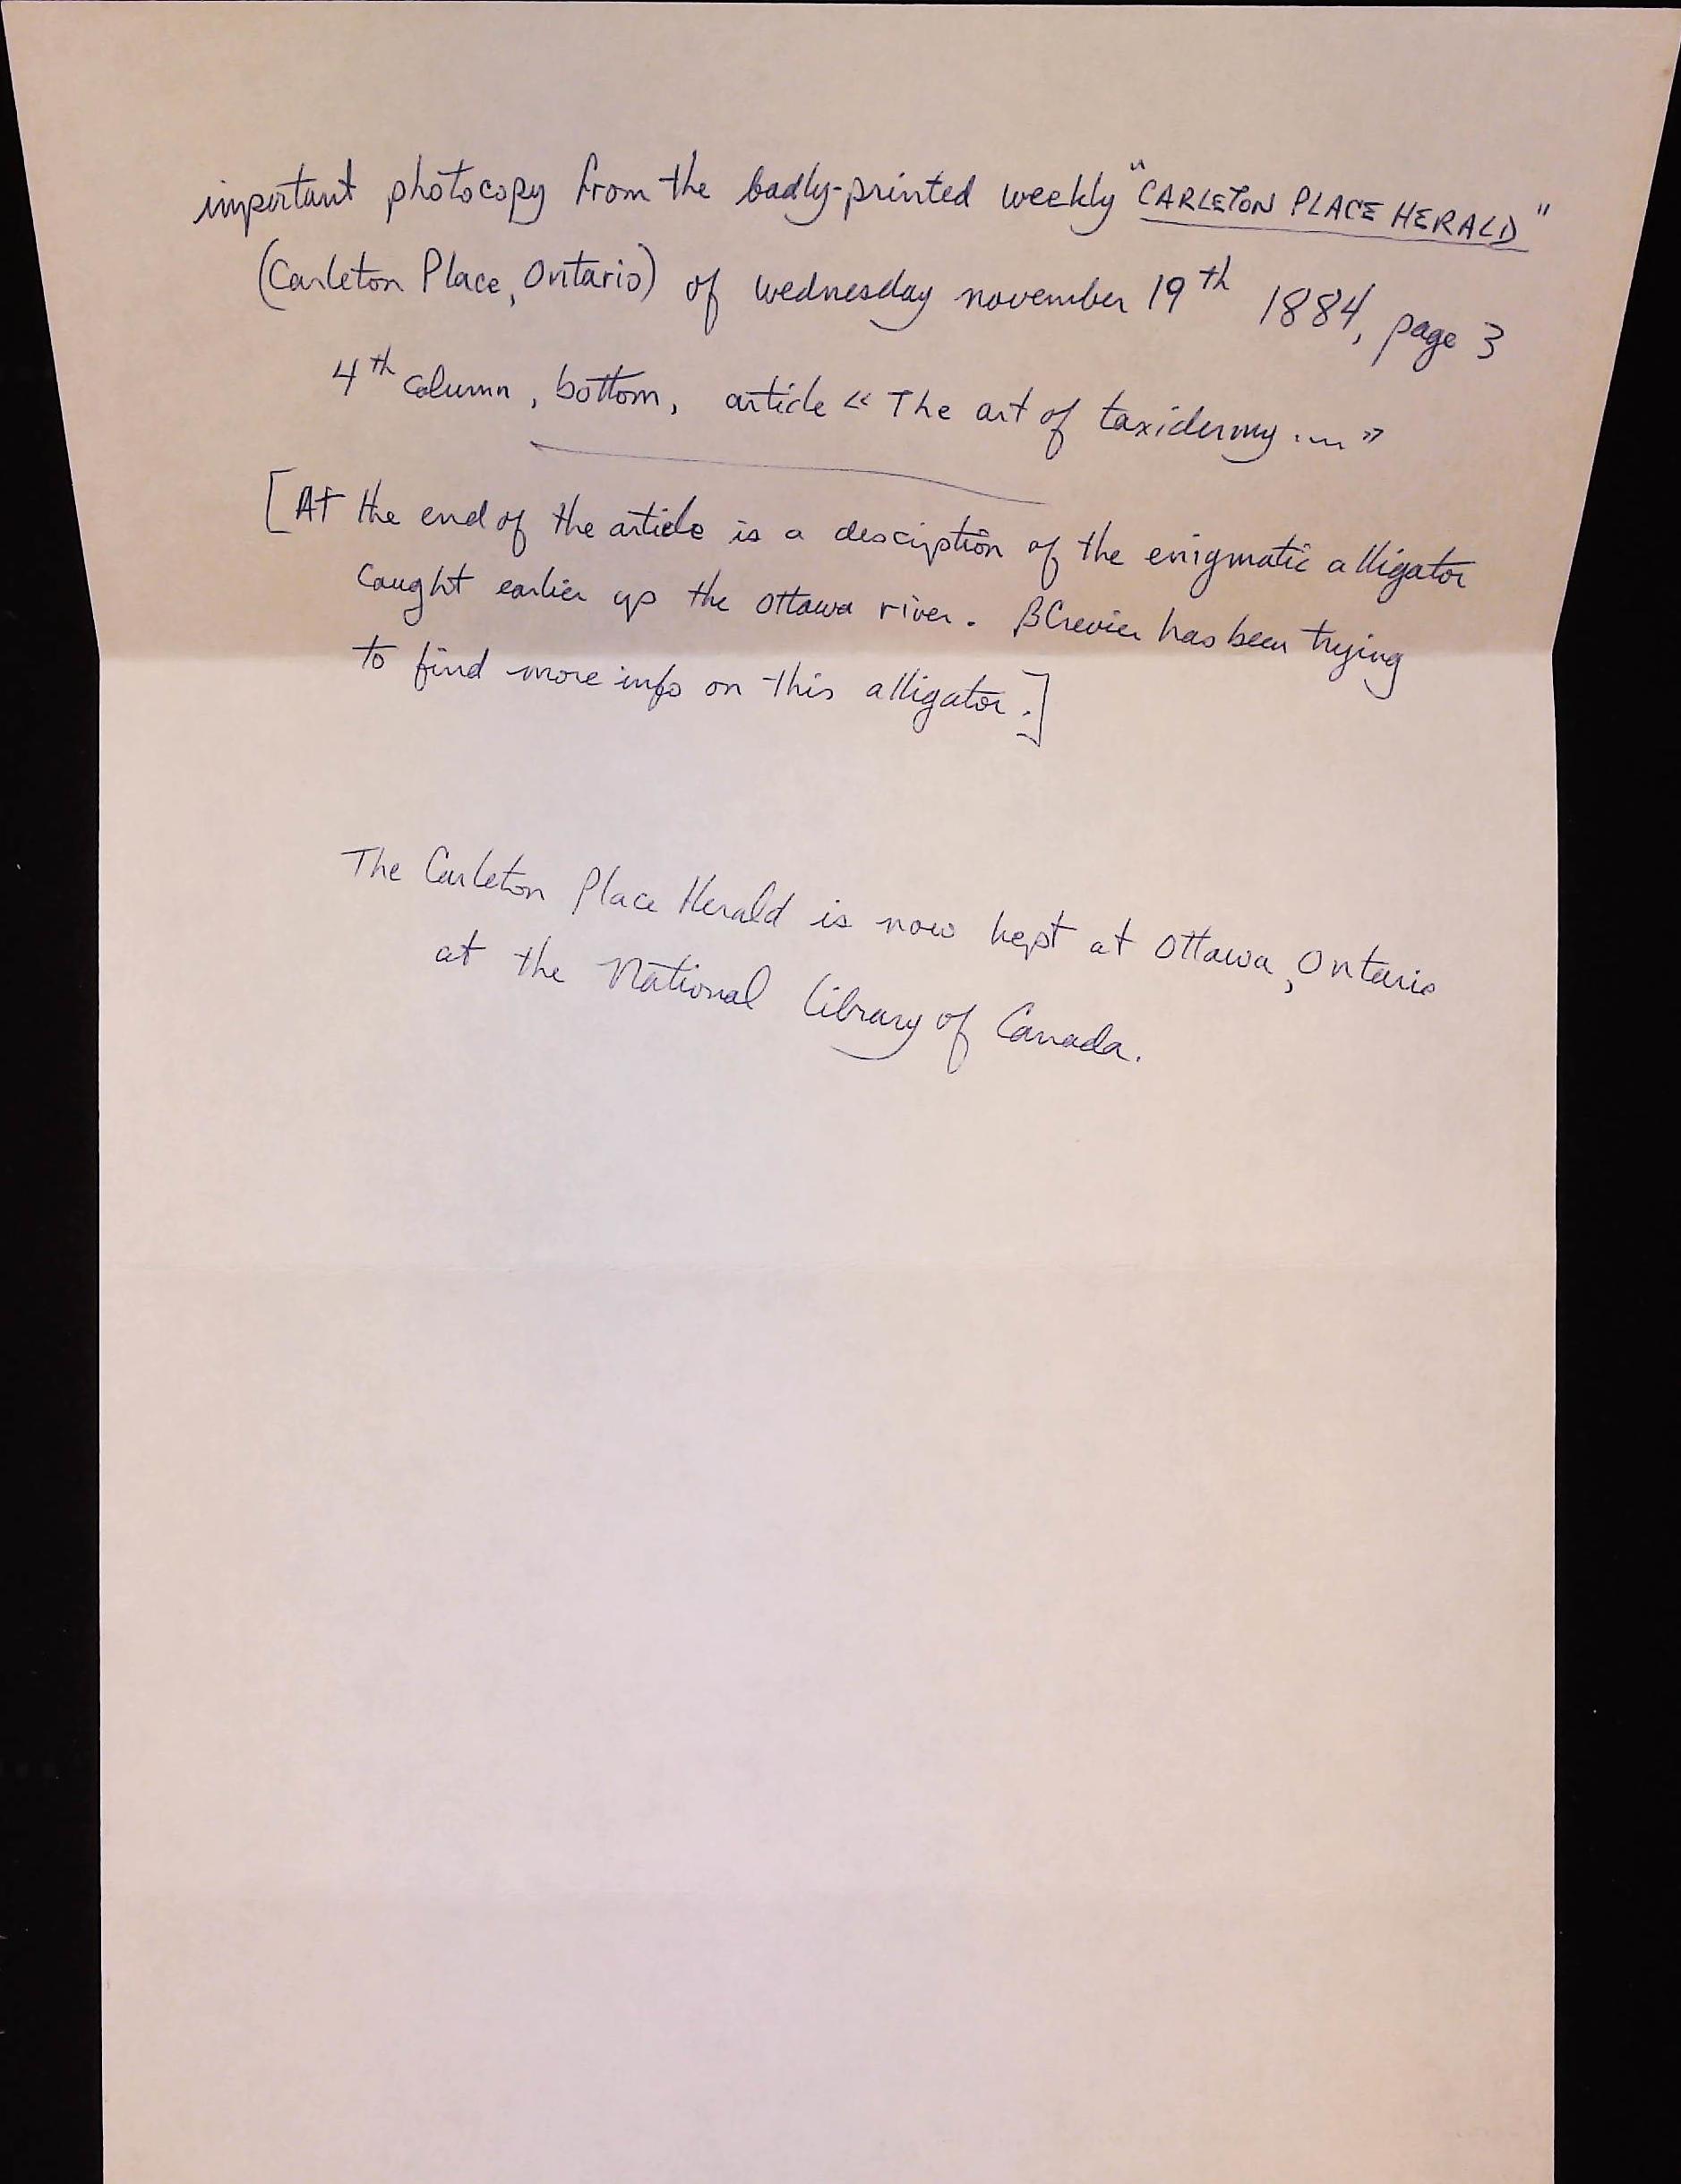 important photocopy from the badly-printed weekly "CARLETON PLACE HERALD"
(Carleton Place, Ontario) of wednesday november 19th 1884, page 3
4th column, bottom, article « The art of taxidermy ... »
[At the end of the article is a desciption of the enigmatic alligator
caught earlier up the Ottawa river. BCrevier has been trying
to find more info on this alligator.]
The Carleton Place Herald is now kept at Ottawa, Ontario
at the National library of Canada.